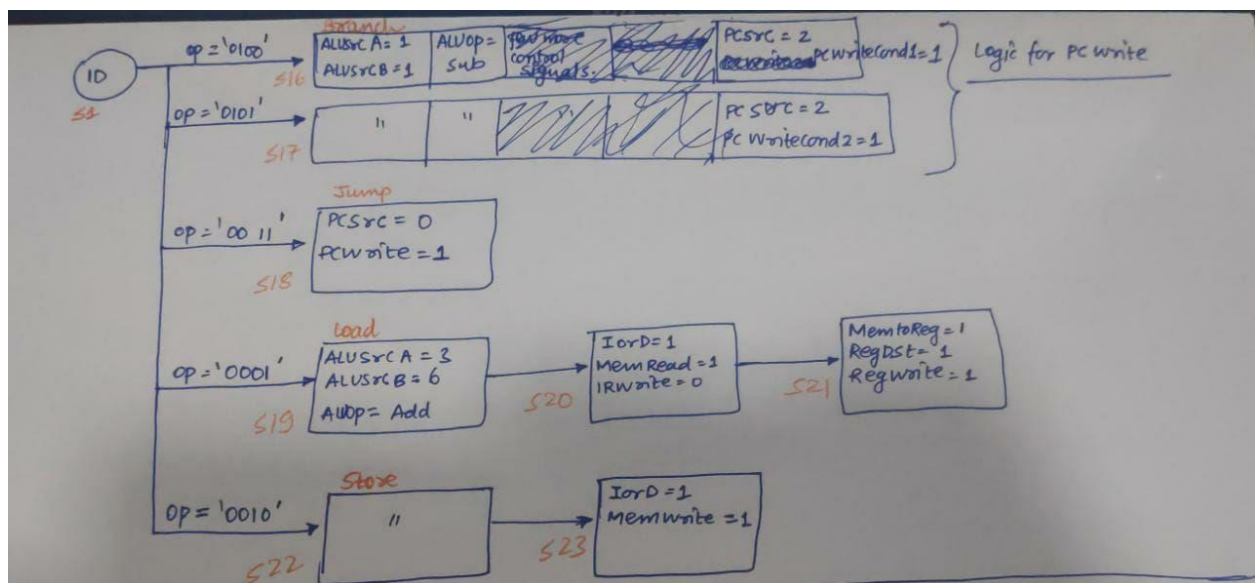 Branch
ID
S1
op = '0100'
S16
ALUSrc A = 1
ALUSrcB = 1
ALUOp =
Sub
control
signals.
PCSrc = 2
PCWriteCond1 = 1
Logic for PC write
op = '0101'
S17
"
"
PCSrc = 2
PC Writecond2 = 1
Jump
op = '0011'
S18
PCSrc = 0
PCWrite = 1
Load
op = '0001'
S19
ALUSrc A = 3
ALUSrcB = 6
ALUOp = Add
S20
IorD = 1
MemRead = 1
IRWrite = 0
S21
MemtoReg = 1
RegDst = 1
RegWrite = 1
Store
op = '0010'
S22
"
S23
IorD = 1
MemWrite = 1